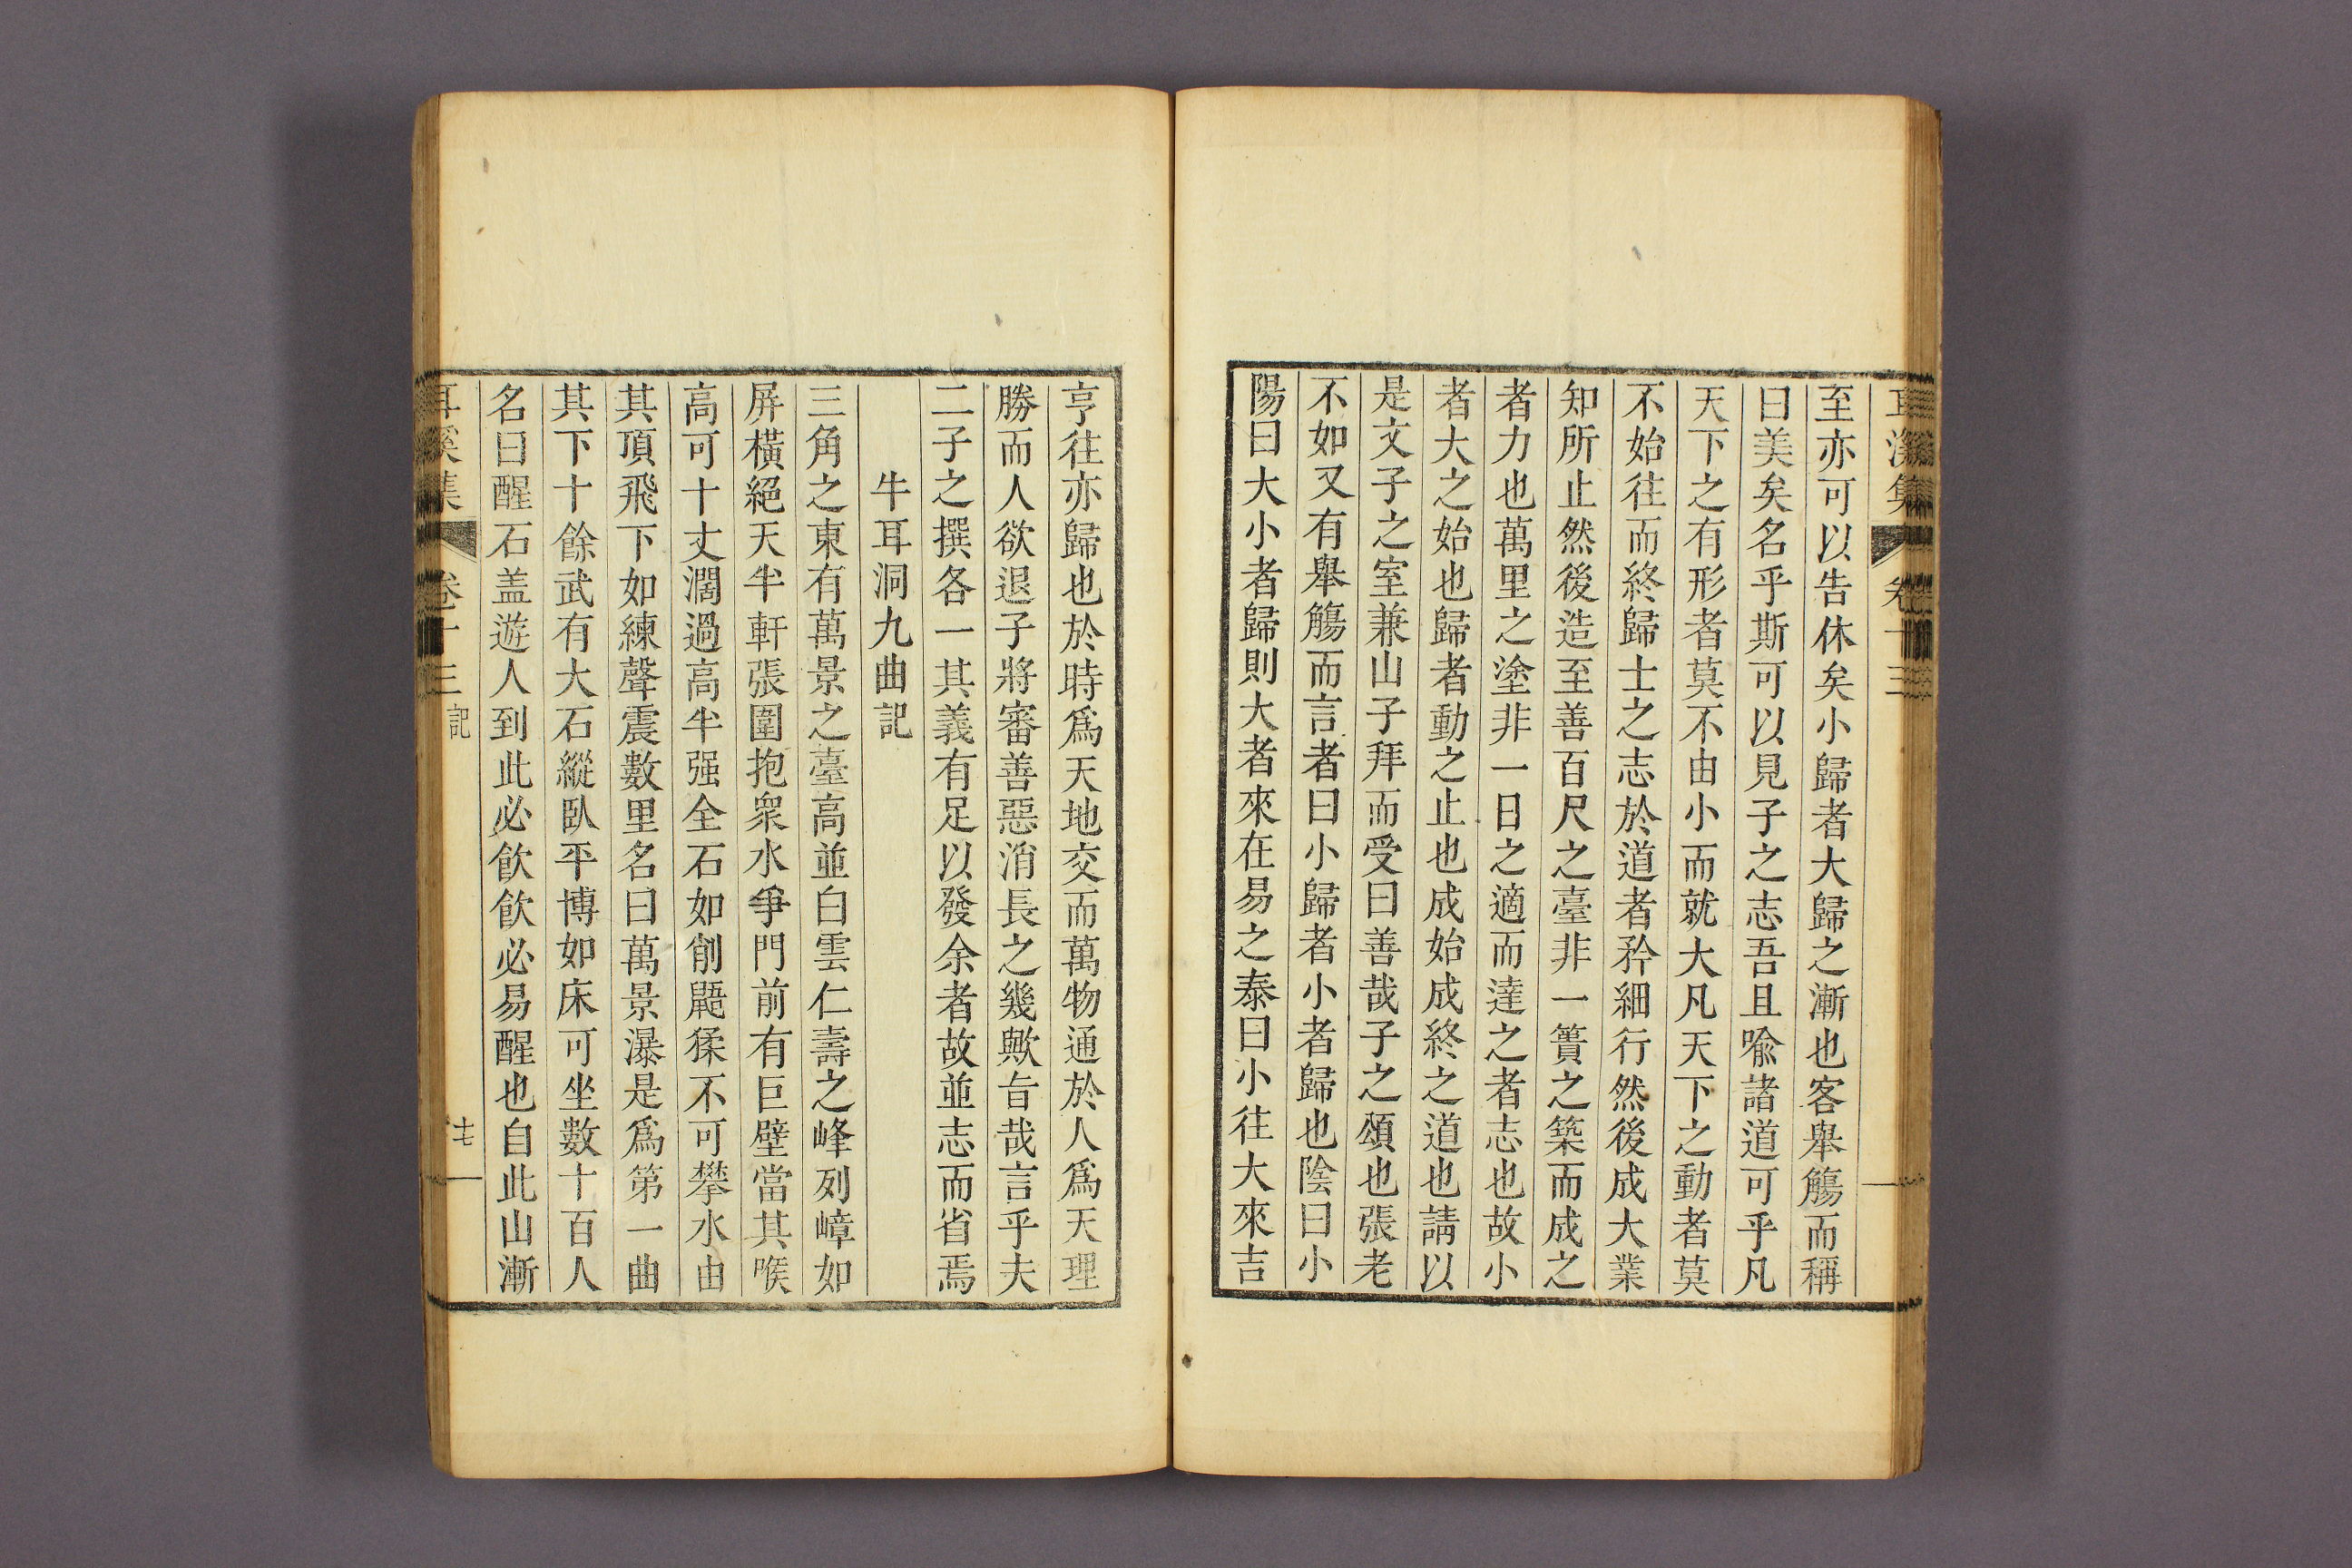 耳溪集 卷十三
至亦可以告休矣小歸者大歸之漸也客舉觴而稱
曰美矣名乎斯可以見子之志吾且喩諸道可乎凡
天下之有形者莫不由小而就大凡天下之動者莫
不始往而終歸士之志於道者矜細行然後成大業
知所止然後造至善百尺之臺非一簣之築而成之
者力也萬里之塗非一日之適而達之者志也故小
者大之始也歸者動之止也成始成終之道也請以
是文子之室兼山子拜而受曰善哉子之頌也張老
不如又有舉觴而言者曰小歸者小者歸也陰曰小
陽曰大小者歸則大者來在易之泰曰小往大來吉
亨往亦歸也於時爲天地交而萬物通於人爲天理
勝而人欲退子將審善惡消長之幾歟旨哉言乎夫
二子之撰各一其義有足以發余者故並志而省焉
牛耳洞九曲記
三角之東有萬景之臺高並白雲仁壽之峰列嶂如
屛橫絕天半軒張圍抱衆水爭門前有巨壁當其喉
高可十丈濶過高半强全石如削鼯猱不可攀水由
其頂飛下如練聲震數里名曰萬景瀑是爲第一曲
其下十餘武有大石縱臥平博如床可坐數十百人
名曰醒石盖遊人到此必飮飮必易醒也自此山漸
耳溪集 卷十三 記 十七